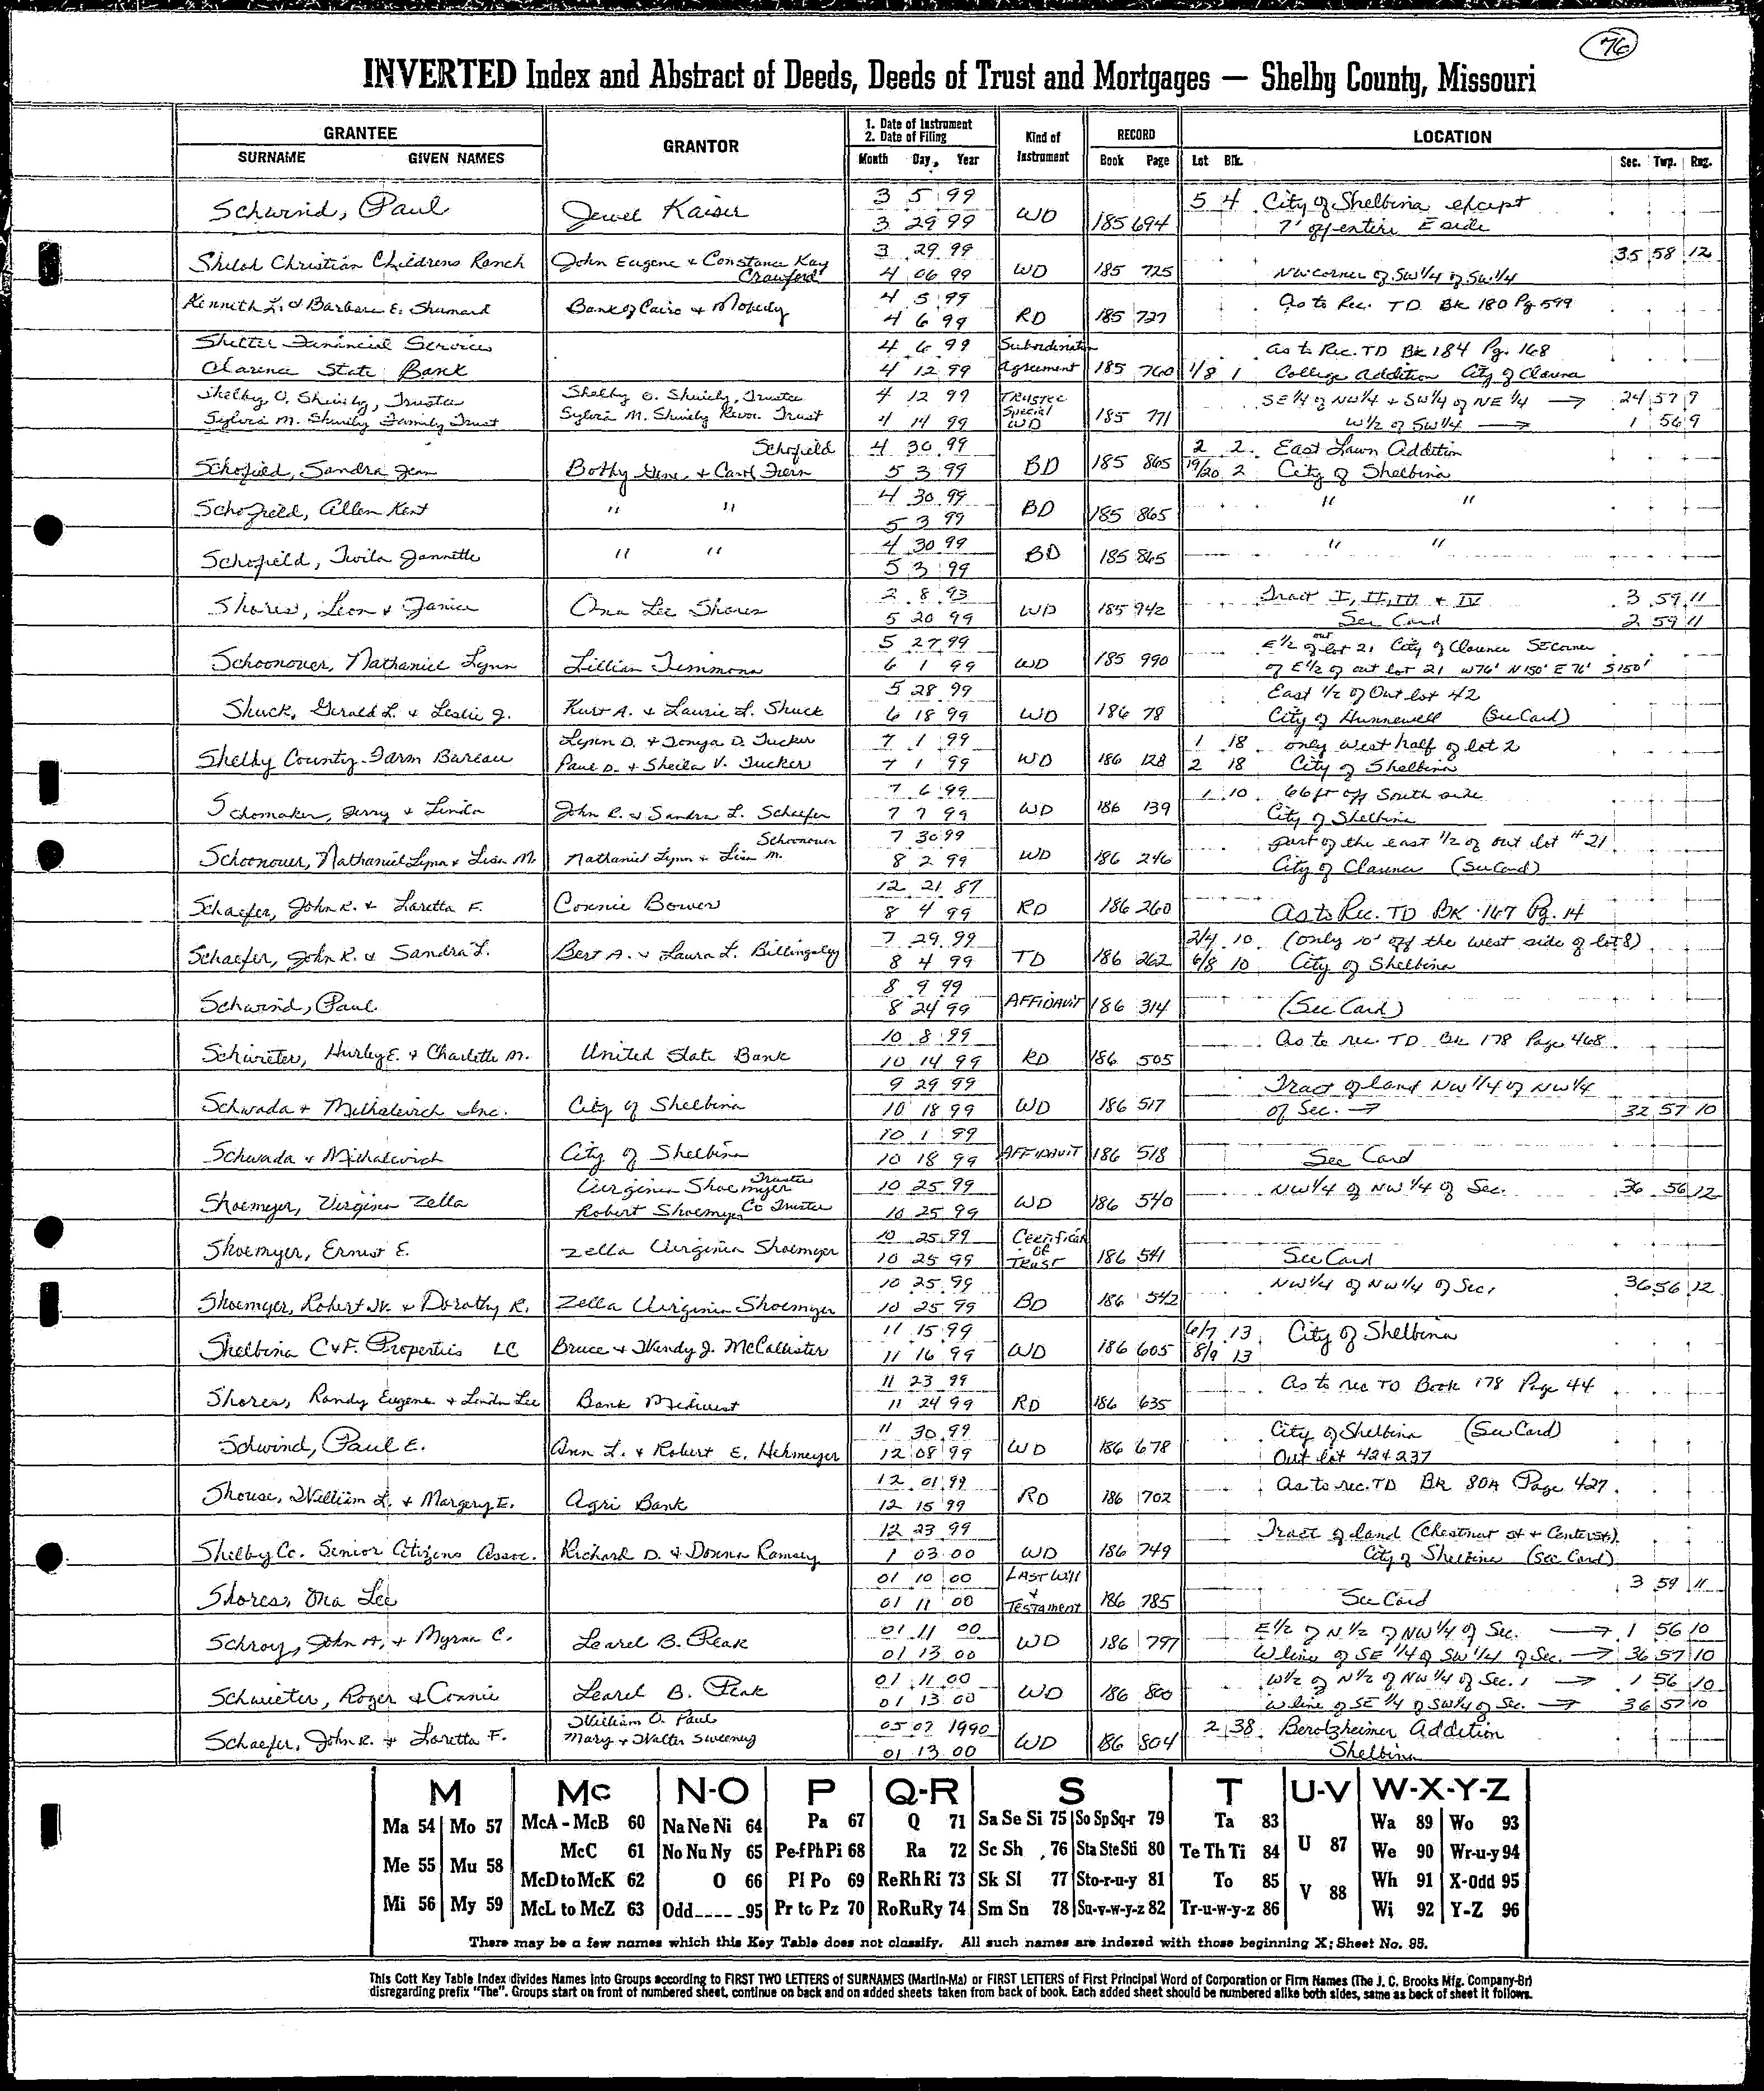 76
INVERTED Index and Abstract of Deeds, Deeds of Trust and Mortgages — Shelby County, Missouri
GRANTEE
SURNAME GIVEN NAMES
GRANTOR
1. Date of Instrument
2. Date of Filing
Month Day, Year
Kind of Instrument
RECORD
Book Page
LOCATION
Lot Blk.
Sec. Twp. Rng.
Schwind, Paul Jewel Kaiser 3 5 99 WD 185 694 5 4 City of Shelbina except
3 29 99 7' off entire E side
Shiloh Christian Childrens Ranch John Eugene & Constance Kay Crawford 3 29 99 WD 185 725 35 58 12
4 06 99 NW corner of SW 1/4 of SW 1/4
Kenneth L. & Barbara E. Shumard Bank of Cairo & Moberly 4 5 99 RD 185 727 As to Rec. TD Bk 180 Pg 599
4 6 99
Shelter Financial Services 4 6 99 Subordination as to Rec. TD Bk 184 Pg. 168
Clarence State Bank 4 12 99 Agreement 185 760 1/8 1 College Addition City of Clarence
Shelby O. Shively, Trustee Shelby O. Shively, Trustee 4 12 99 Trustee Special WD 185 771 SE 1/4 of NW 1/4 & SW 1/4 of NE 1/4 → 24 57 9
Sylvia M. Shively Family Trust Sylvia M. Shively Revoc. Trust 4 14 99 W 1/2 of SW 1/4 → 1 56 9
Schofield, Sandra Jean Bobby Gene & Carol Fern Schofield 4 30 99 BD 185 865 2 2 East Lawn Addition
5 3 99 19/20 2 City of Shelbina
Schofield, Allen Kent " " 4 30 99 BD 185 865 " "
5 3 99
Schofield, Twila Jannette " " 4 30 99 BD 185 865 " "
5 3 99
Shores, Leon & Janice Ona Lee Shores 2 8 93 WD 185 942 Tract I, II, III & IV 3 59 11
5 20 99 See Card 2 59 11
Schoonover, Nathaniel Lynn Lillian Timmons 5 27 99 WD 185 990 E 1/2 of out lot 21 City of Clarence SE corner
6 1 99 of E 1/2 of out lot 21 W 76' N 150' E 76' S 150'
Shuck, Gerald L. & Leslie J. Kurt A. & Laurie L. Shuck 5 28 99 WD 186 78 East 1/2 of Out lot 42
6 18 99 City of Hunnewell (See Card)
Shelby County Farm Bureau Lynn D. & Tonya D. Tucker 7 1 99 WD 186 128 1 18 only west half of lot 2
Paul D. & Sheila V. Tucker 7 1 99 2 18 City of Shelbina
Schomaker, Jerry & Linda John R. & Sandra L. Schaefer 7 6 99 WD 186 139 1 10 66 ft off South side
7 7 99 City of Shelbina
Schoonover, Nathaniel Lynn & Lisa M. Nathaniel Lynn & Lisa M. Schoonover 7 30 99 WD 186 246 part of the east 1/2 of out lot #21
8 2 99 City of Clarence (See Card)
Schaefer, John R. & Laretta F. Connie Bower 12 21 87 RD 186 260
8 4 99 As to Rec. TD BK 167 Pg. 14
Schaefer, John R. & Sandra L. Bert A. & Laura L. Billingsley 7 29 99 TD 186 262 2/4 10 (only 10' off the west side of lot 8)
8 4 99 6/8 10 City of Shelbina
Schwind, Paul 8 9 99 AFFIDAVIT 186 314 (See Card)
8 24 99
Schwieter, Hurley E. & Charlotte M. United State Bank 10 8 99 RD 186 505 As to rec. TD Bk 178 Page 468
10 14 99
Schwada & Mihalevich Inc. City of Shelbina 9 29 99 WD 186 517 Tract of land NW 1/4 of NW 1/4
10 18 99 of Sec. → 32 57 10
Schwada & Mihalevich City of Shelbina 10 1 99 AFFIDAVIT 186 518 See Card
10 18 99
Shoemyer, Virginia Zella Virginia Shoemyer Trustee 10 25 99 WD 186 540 NW 1/4 of NW 1/4 of Sec. 36 56 12
Robert Shoemyer Co Trustee 10 25 99
Shoemyer, Ernest E. Zella Virginia Shoemyer 10 25 99 Certificat of Trust 186 541 See Card
10 25 99
Shoemyer, Robert W. & Dorothy R. Zella Virginia Shoemyer 10 25 99 BD 186 542 NW 1/4 of NW 1/4 of Sec. 36 56 12
10 25 99
Shelbina C&F Properties LC Bruce & Wendy J. McCallister 11 15 99 WD 186 605 6/7 13 City of Shelbina
11 16 99 8/9 13
Shores, Randy Eugene & Linda Lee Bank Midwest 11 23 99 RD 186 635 As to rec TD Book 178 Page 44
11 24 99
Schwind, Paul E. Ann L. & Robert E. Hehmeyer 11 30 99 WD 186 678 City of Shelbina (See Card)
12 08 99 Out lot 42 & 237
Shouse, William L. & Margery E. Agri Bank 12 01 99 RD 186 702 As to rec. TD Bk 80A Page 427
12 15 99
Shelby Co. Senior Citizens Assoc. Richard D. & Donna Ramsey 12 23 99 WD 186 749 Tract of land (Chestnut St & Center St)
1 03 00 City of Shelbina (See Card)
Shores, Ona Lee 01 10 00 Last Will & Testament 186 785 3 59 11
01 11 00 See Card
Schroy, John A. & Myrna C. Learel B. Peak 01 11 00 WD 186 797 E 1/2 of N 1/2 of NW 1/4 of Sec. → 1 56 10
01 13 00 W line of SE 1/4 of SW 1/4 of Sec. → 36 57 10
Schwieter, Roger & Connie Learel B. Peak 01 11 00 WD 186 800 W 1/2 of N 1/2 of NW 1/4 of Sec. 1 → 1 56 10
01 13 00 W line of SE 1/4 of SW 1/4 of Sec. → 36 57 10
Schaefer, John R. & Laretta F. William O. Paul 05 07 1990 WD 186 804 2 38 Berolzheimer Addition
Mary & Walter Sweeney 01 13 00 Shelbina
M Mc N-O P Q-R S T U-V W-X-Y-Z
Ma 54 Mo 57 McA - McB 60 Na Ne Ni 64 Pa 67 Q 71 Sa Se Si 75 So Sp Sq-r 79 Ta 83 Wa 89 Wo 93
McC 61 No Nu Ny 65 Pe-f Ph Pi 68 Ra 72 Sc Sh 76 Sta Ste Sti 80 Te Th Ti 84 U 87 We 90 Wr-u-y 94
Me 55 Mu 58 McD to McK 62 O 66 Pl Po 69 Re Rh Ri 73 Sk Sl 77 Sto-r-u-y 81 To 85 V 88 Wh 91 X-Odd 95
Mi 56 My 59 McL to McZ 63 Odd 95 Pr to Pz 70 Ro Ru Ry 74 Sm Sn 78 Su-v-w-y-z 82 Tr-u-w-y-z 86 Wi 92 Y-Z 96
There may be a few names which this Key Table does not classify. All such names are indexed with those beginning X; Sheet No. 95.
This Cott Key Table Index divides Names into Groups according to FIRST TWO LETTERS of SURNAMES (Martin-Ma) or FIRST LETTERS of First Principal Word of Corporation or Firm Names (The J. C. Brooks Mfg. Company-Br)
disregarding prefix "The". Groups start on front of numbered sheet, continue on back and on added sheets taken from back of book. Each added sheet should be numbered alike both sides, same as back of sheet it follows.